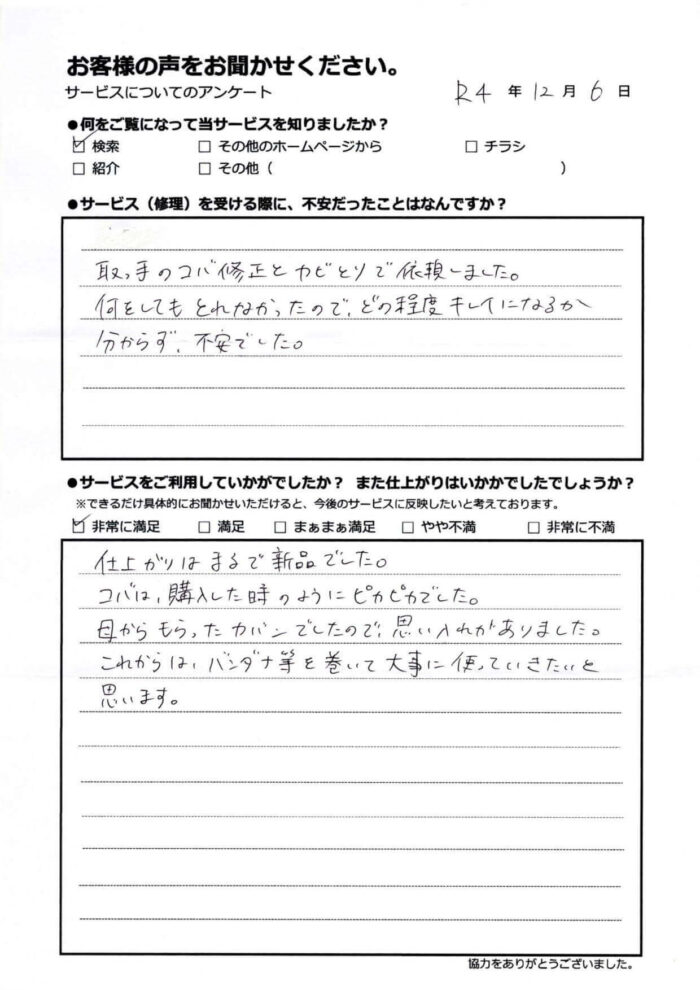 お客様の声をお聞かせください。
サービスについてのアンケート
R4 年 12 月 6 日
●何をご覧になって当サービスを知りましたか？
☑ 検索 □ その他のホームページから □ チラシ
□ 紹介 □ その他（ ）
●サービス（修理）を受ける際に、不安だったことはなんですか？
取っ手のコバ修正とカビとりで依頼しました。
何をしてもとれなかったので、どの程度キレイになるか
分からず、不安でした。
●サービスをご利用していかがでしたか？ また仕上がりはいかかでしたでしょうか？
※できるだけ具体的にお聞かせいただけると、今後のサービスに反映したいと考えております。
☑ 非常に満足 □ 満足 □ まぁまぁ満足 □ やや不満 □ 非常に不満
仕上がりはまるで新品でした。
コバは、購入した時のようにピカピカでした。
母からもらったカバンでしたので、思い入れがありました。
これからは、バンダナ等を巻いて大事に使っていきたいと
思います。
協力をありがとうございました。